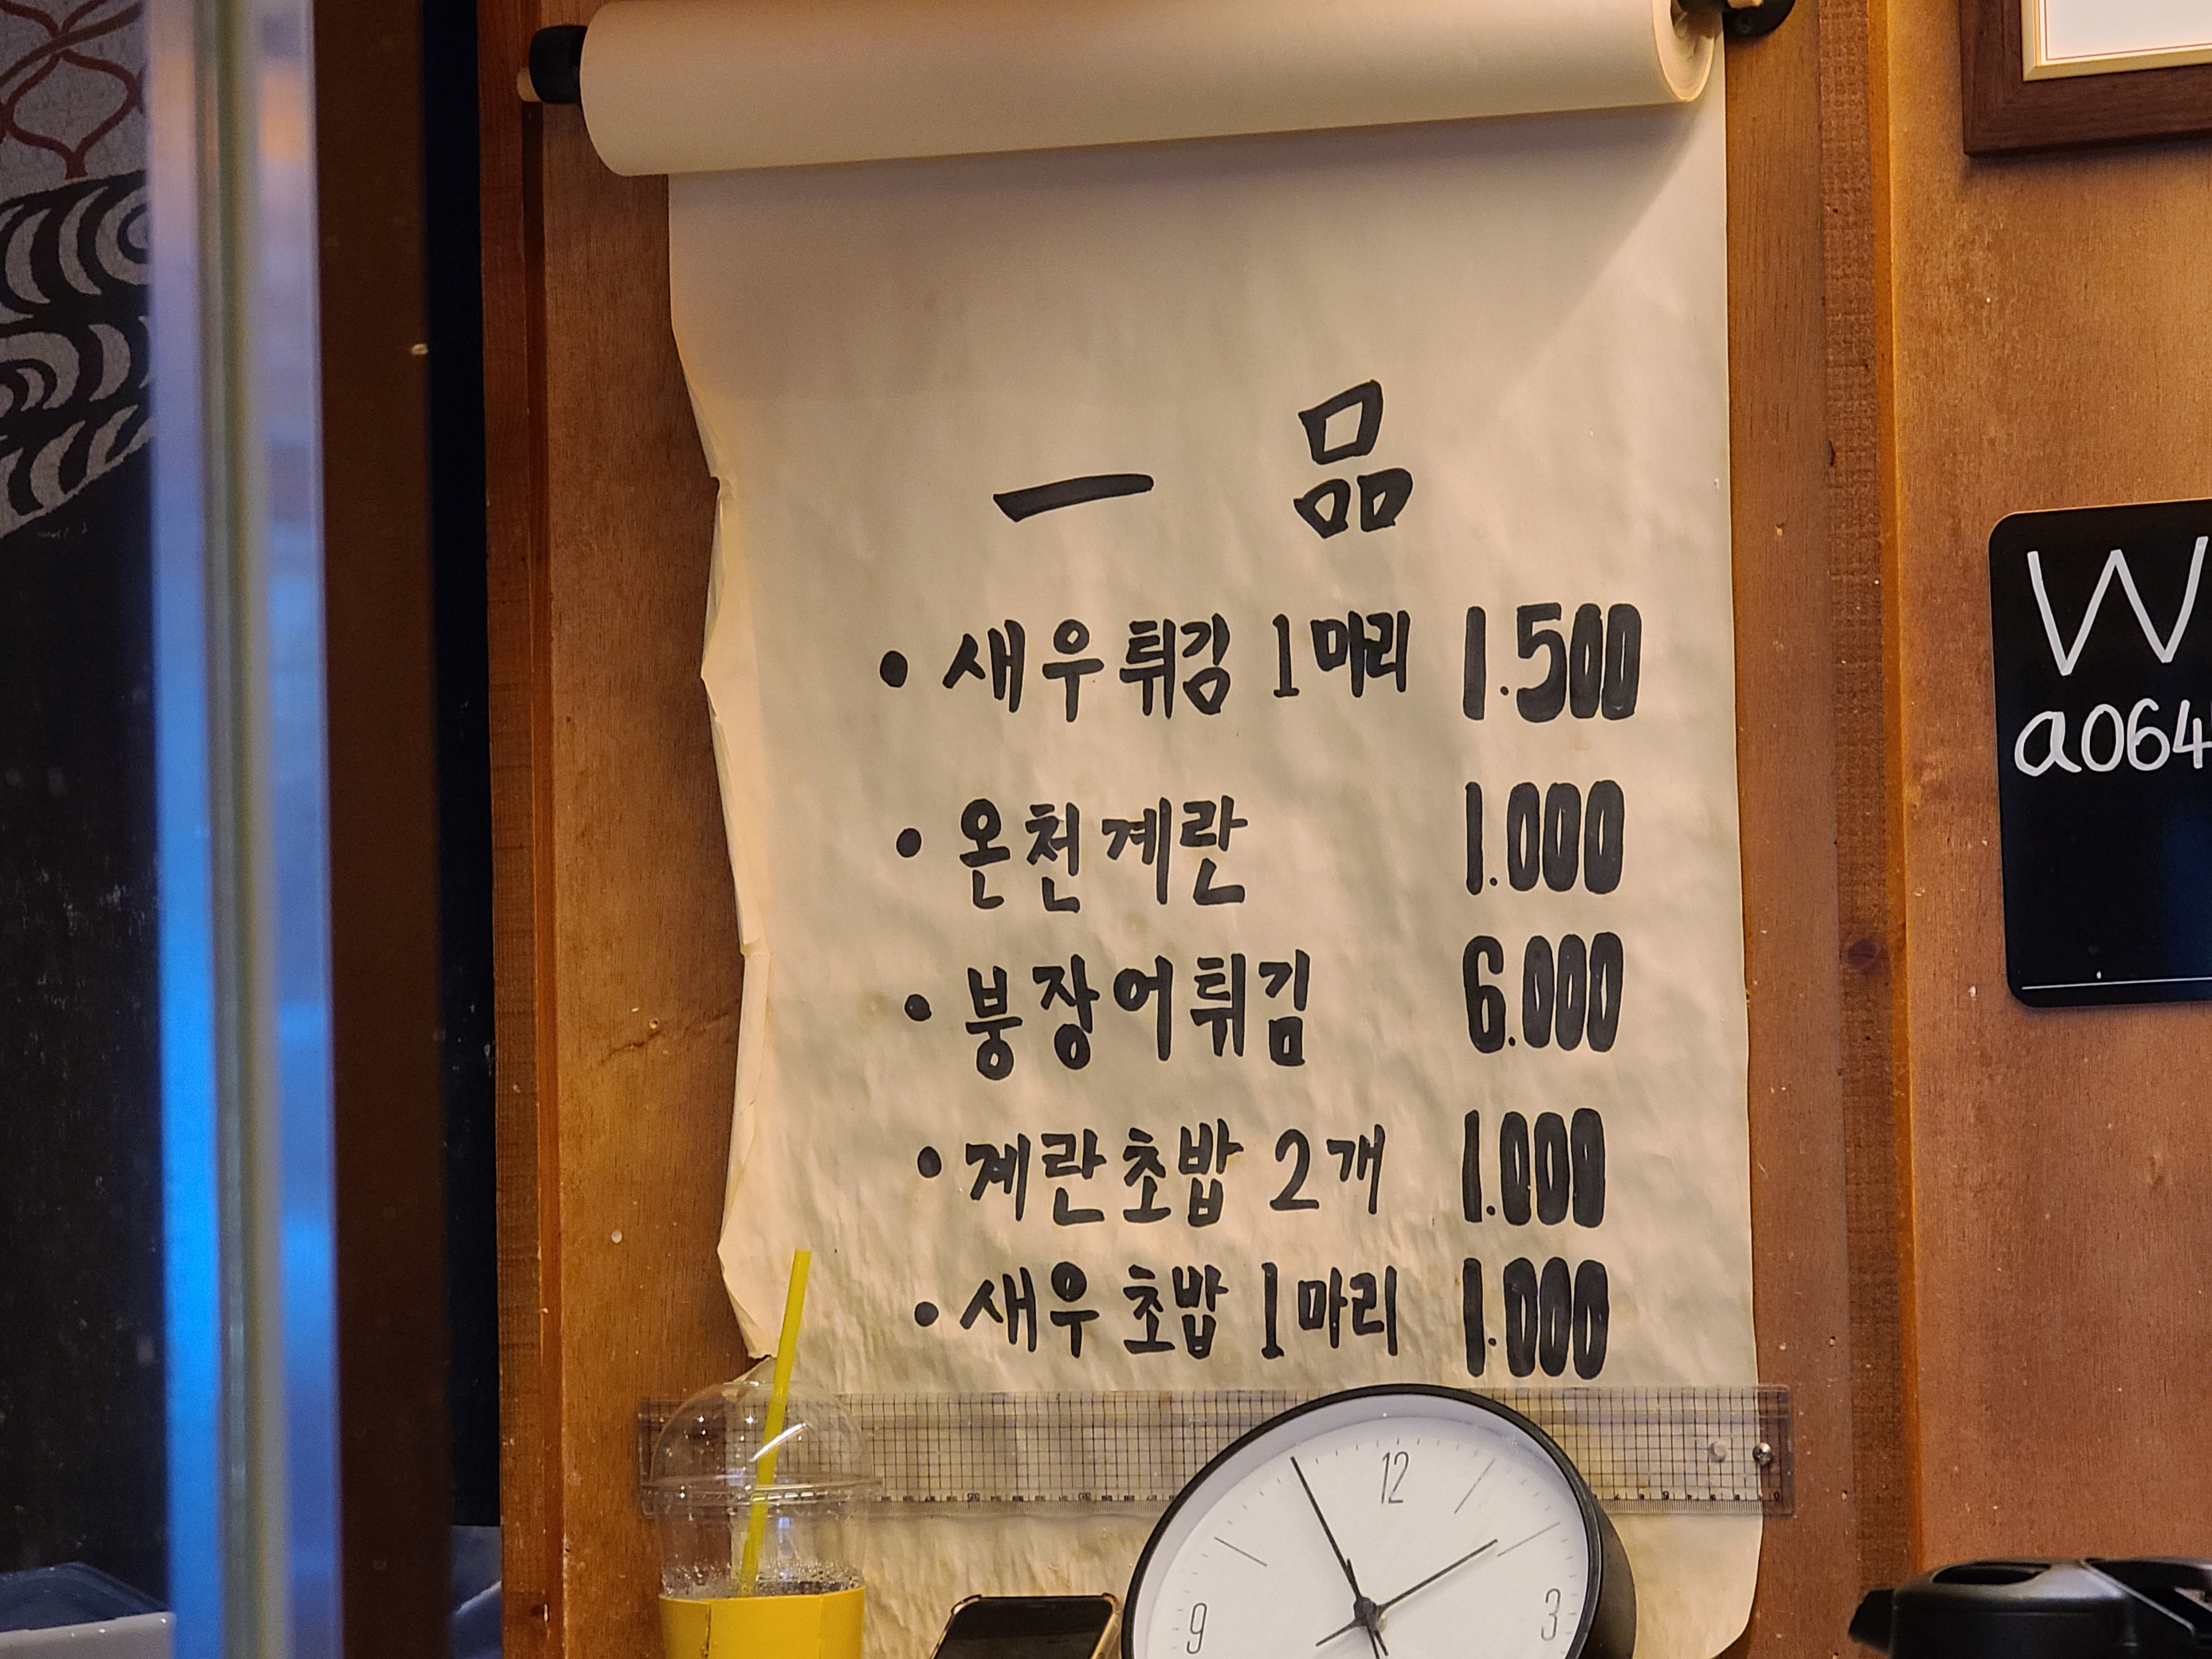 一 品
• 새우튀김 1마리 1.500
• 온천계란 1.000
• 붕장어튀김 6.000
• 계란초밥 2개 1.000
• 새우초밥 1마리 1.000
W
a064
12
9
3